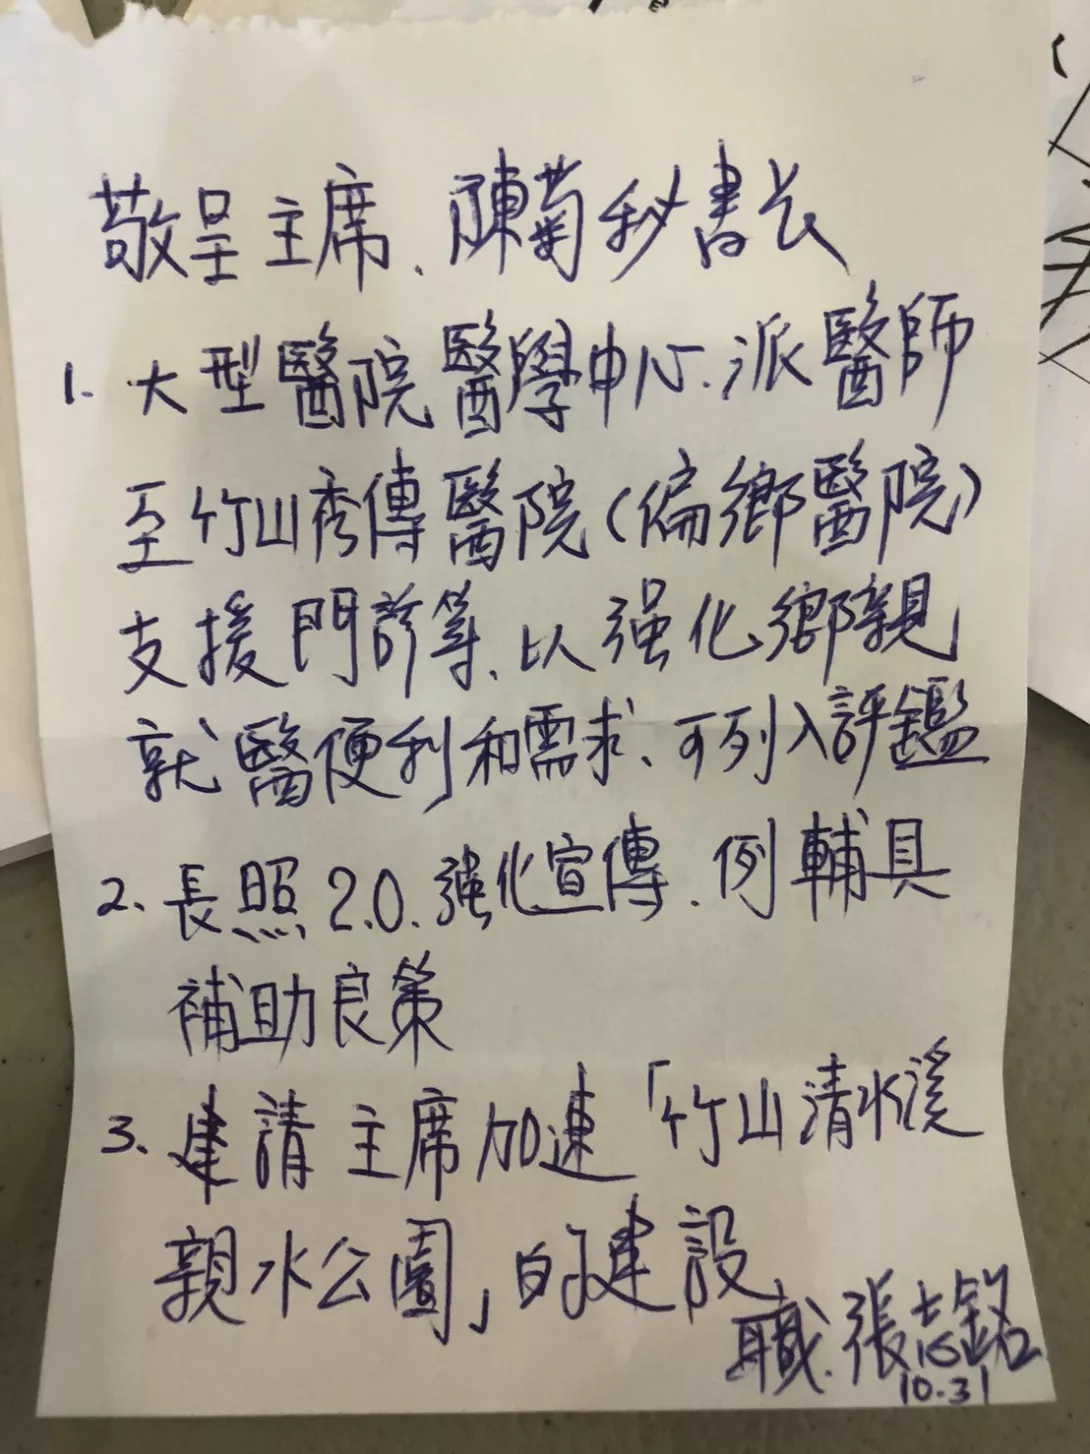 敬呈主席、陳菊秘書長
1. 大型醫院醫學中心、派醫師
至竹山秀傳醫院(偏鄉醫院)
支援門診等、以强化鄉親
就醫便利和需求、可列入評鑑
2. 長照2.0、強化宣傳、例輔具
補助良策
3. 建請主席加速「竹山清水溪
親水公園」的建設
職、張志銘
10.31